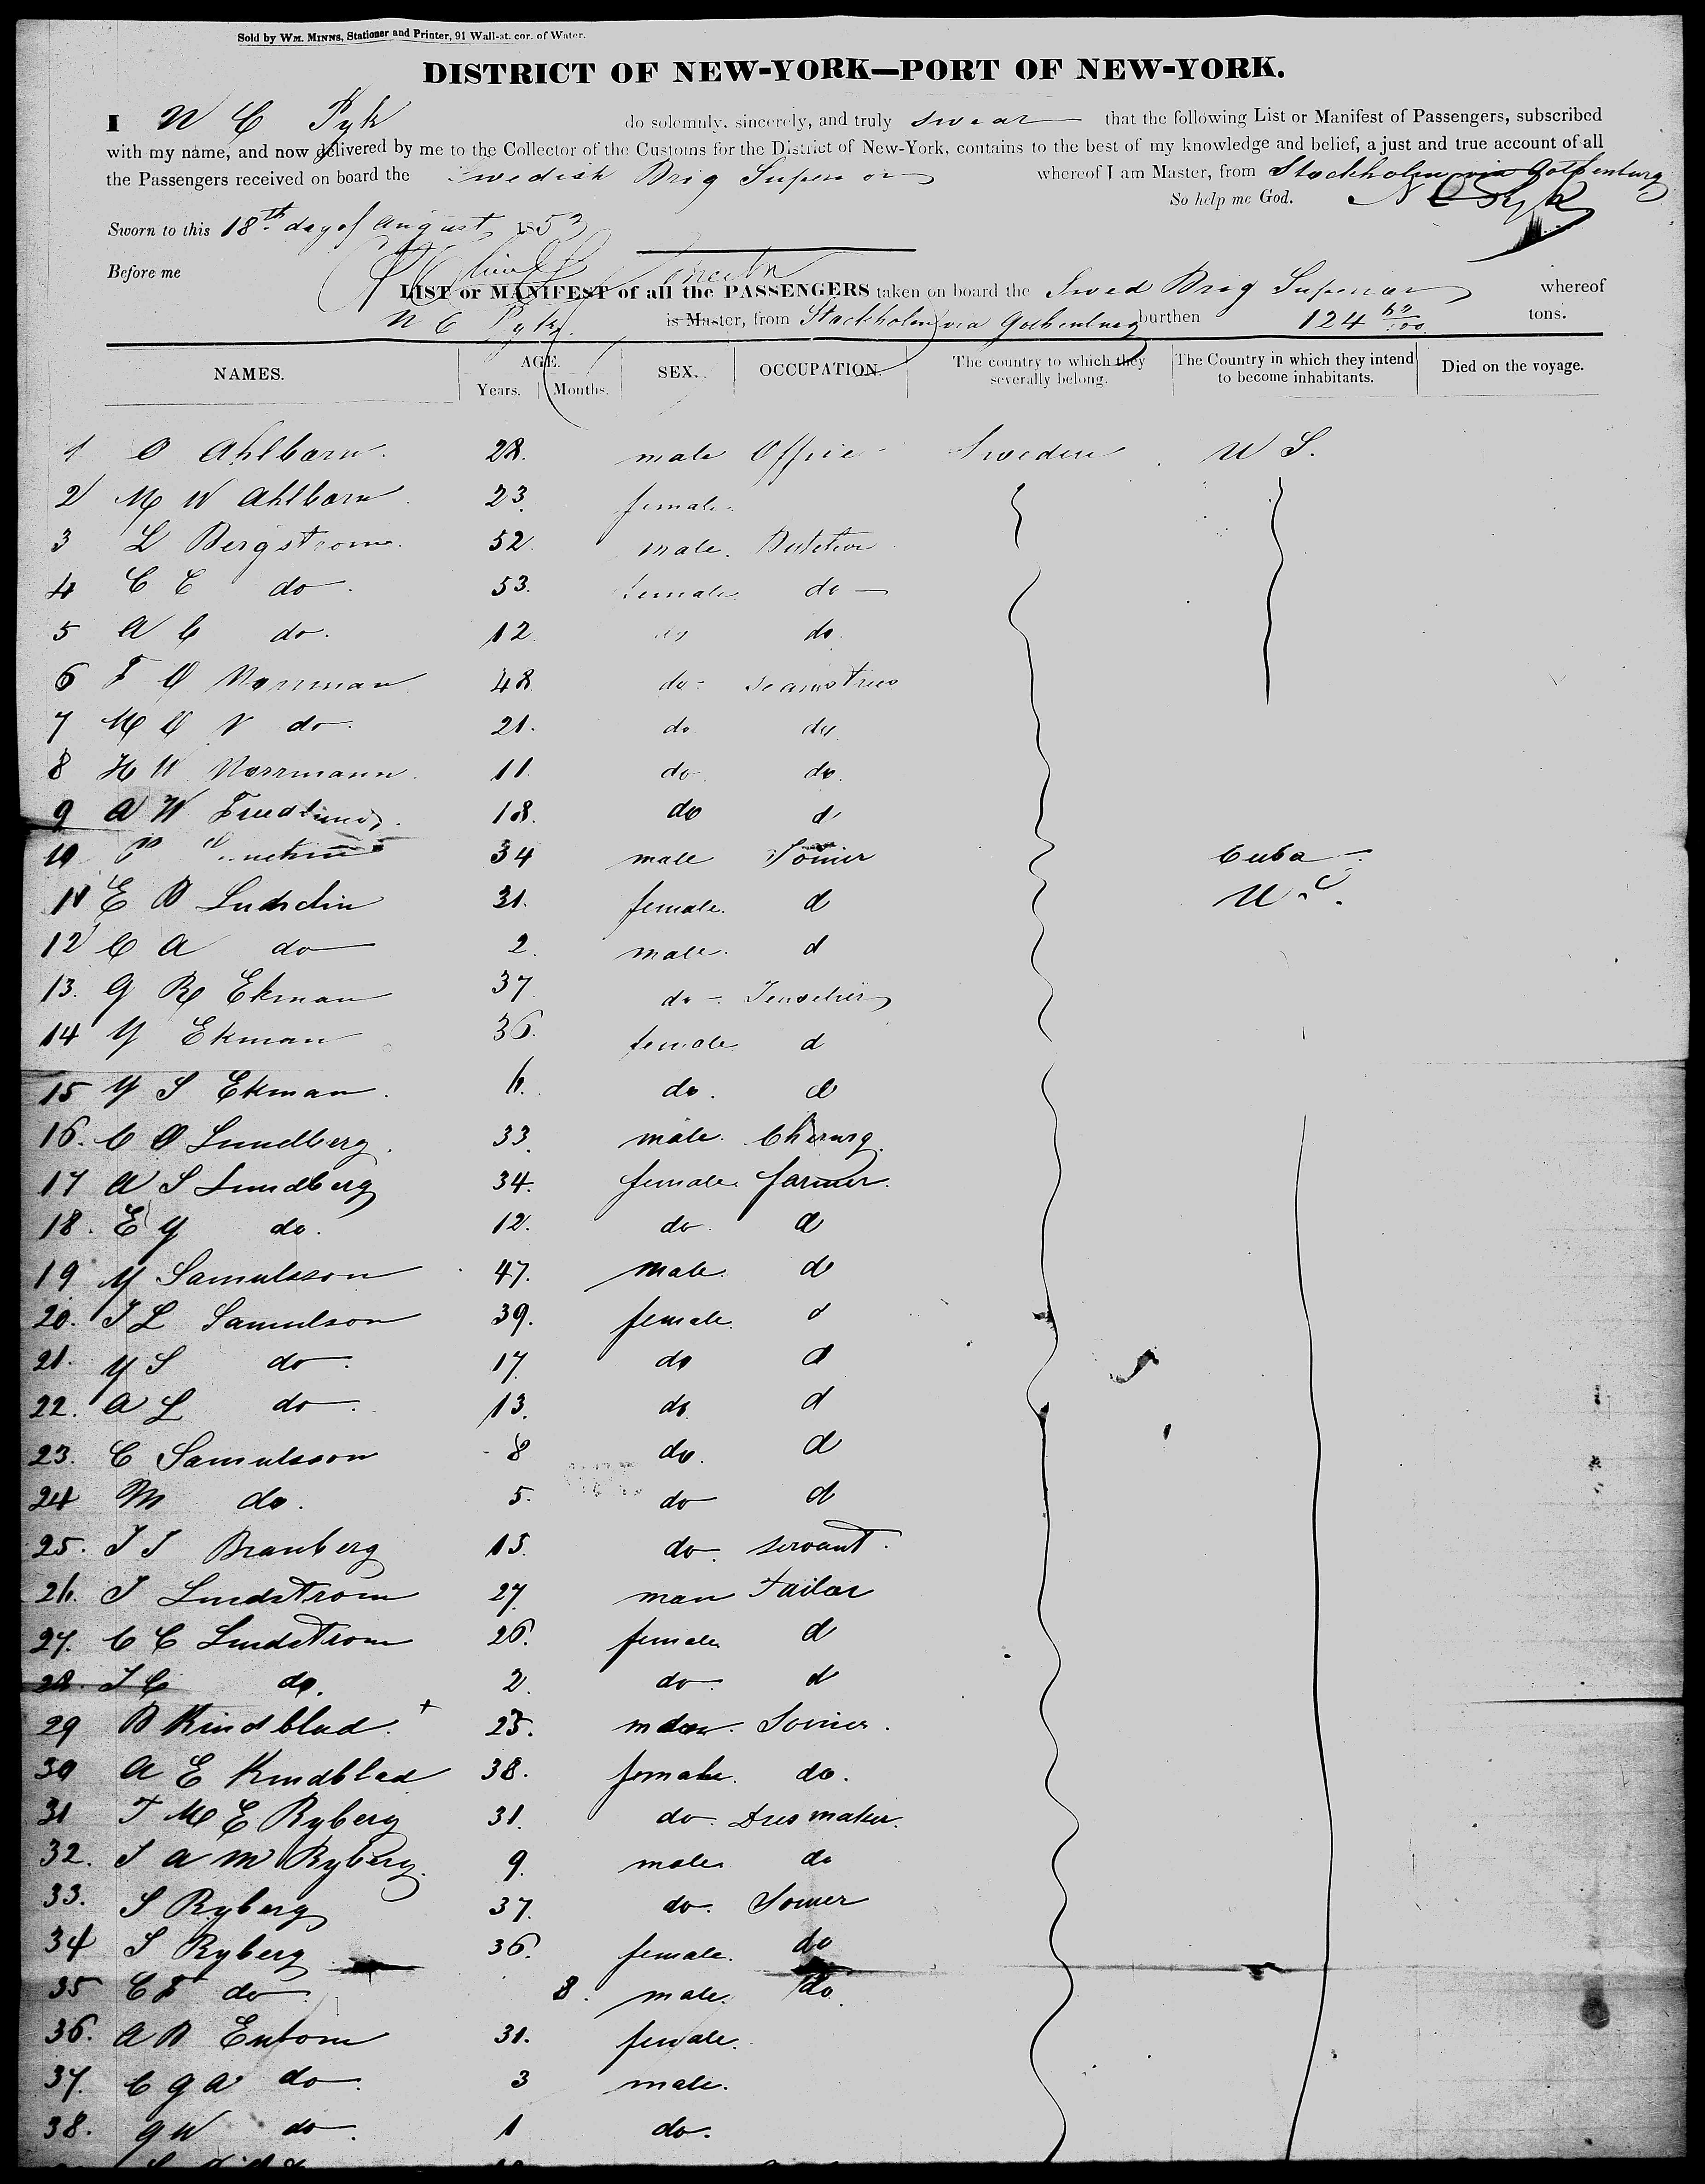 Sold by WM. MINNS, Stationer and Printer, 91 Wall-st. cor. of Water.
DISTRICT OF NEW-YORK—PORT OF NEW-YORK.
I N C Pyk do solemnly, sincerely, and truly swear that the following List or Manifest of Passengers, subscribed
with my name, and now delivered by me to the Collector of the Customs for the District of New-York, contains to the best of my knowledge and belief, a just and true account of all
the Passengers received on board the Swedish Brig Superior whereof I am Master, from Stockholm via Gothenburg
So help me God. N C Pyk
Sworn to this 18th day of August 1853
Before me
LIST or MANIFEST of all the PASSENGERS taken on board the Swed Brig Superior whereof
N C Pyk is Master, from Stockholm via Gothenburg burthen 124 tons.
NAMES. AGE. Years. Months. SEX. OCCUPATION. The country to which they severally belong. The Country in which they intend to become inhabitants. Died on the voyage.
1 O Ahlborn 28. male Office Sweden U S.
2 M W Ahlborn 23. female
3 L Bergstrom 52. male
4 C C do 53. female do
5 A C do. 12. do do
6 F Norrman 48 do Seamstress
7 M V do 21. do do
8 H W Norrmann 11. do do
9 A W 18. do d
10 34 male Joiner Cuba
11 E B Lundin 31. female d U S.
12 C A do 2 male d
13. G R Ekman 37 do
14 Y Ekman 36. female d
15 Y S Ekman 6. do d
16. C O Lundberg 33. male Chirurg
17 A S Lundberg 34. female farmer
18. E Y do. 12. do d
19 Y Samulsson 47. male d
20. J L Samulson 39. female d
21. Y S do 17. do d
22. A L do 13. do d
23. C Samulsson 8 do d
24 M do. 5. do d
25. J J Branberg 15. do servant.
26. J Lindstrom 27 man Tailor
27. C C Lindstrom 26. female d
28. J C do. 2 do d
29 B Kindblad. + 25. Joiner.
30 A E Kindblad 38. female do.
31 T M E Ryberg 31. do Dresmaker.
32. J A M Ryberg 9. male do
33. S Ryberg 37. do Joiner
34 S Ryberg 36. female. do
35 C F do 8. male. do
36. A B 31. female.
37. C G A do 3 male.
38. G W do 1 do.